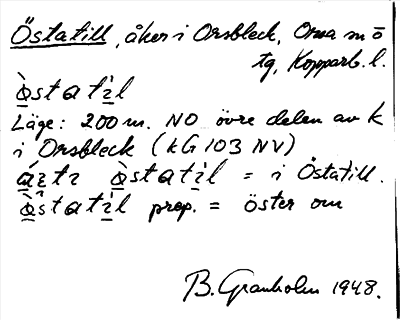 Östatill, åker i Orsbleck, Orsa m ö
tg, Kopparb. l.
ò̱statì̱l
Läge: 200 m. NO övre delen av k
i Orsbleck (kG 103 NV)
ò̱statì̱l = i Östatill.
ò̱statì̱l prep. = öster om
B. Granholm 1948.